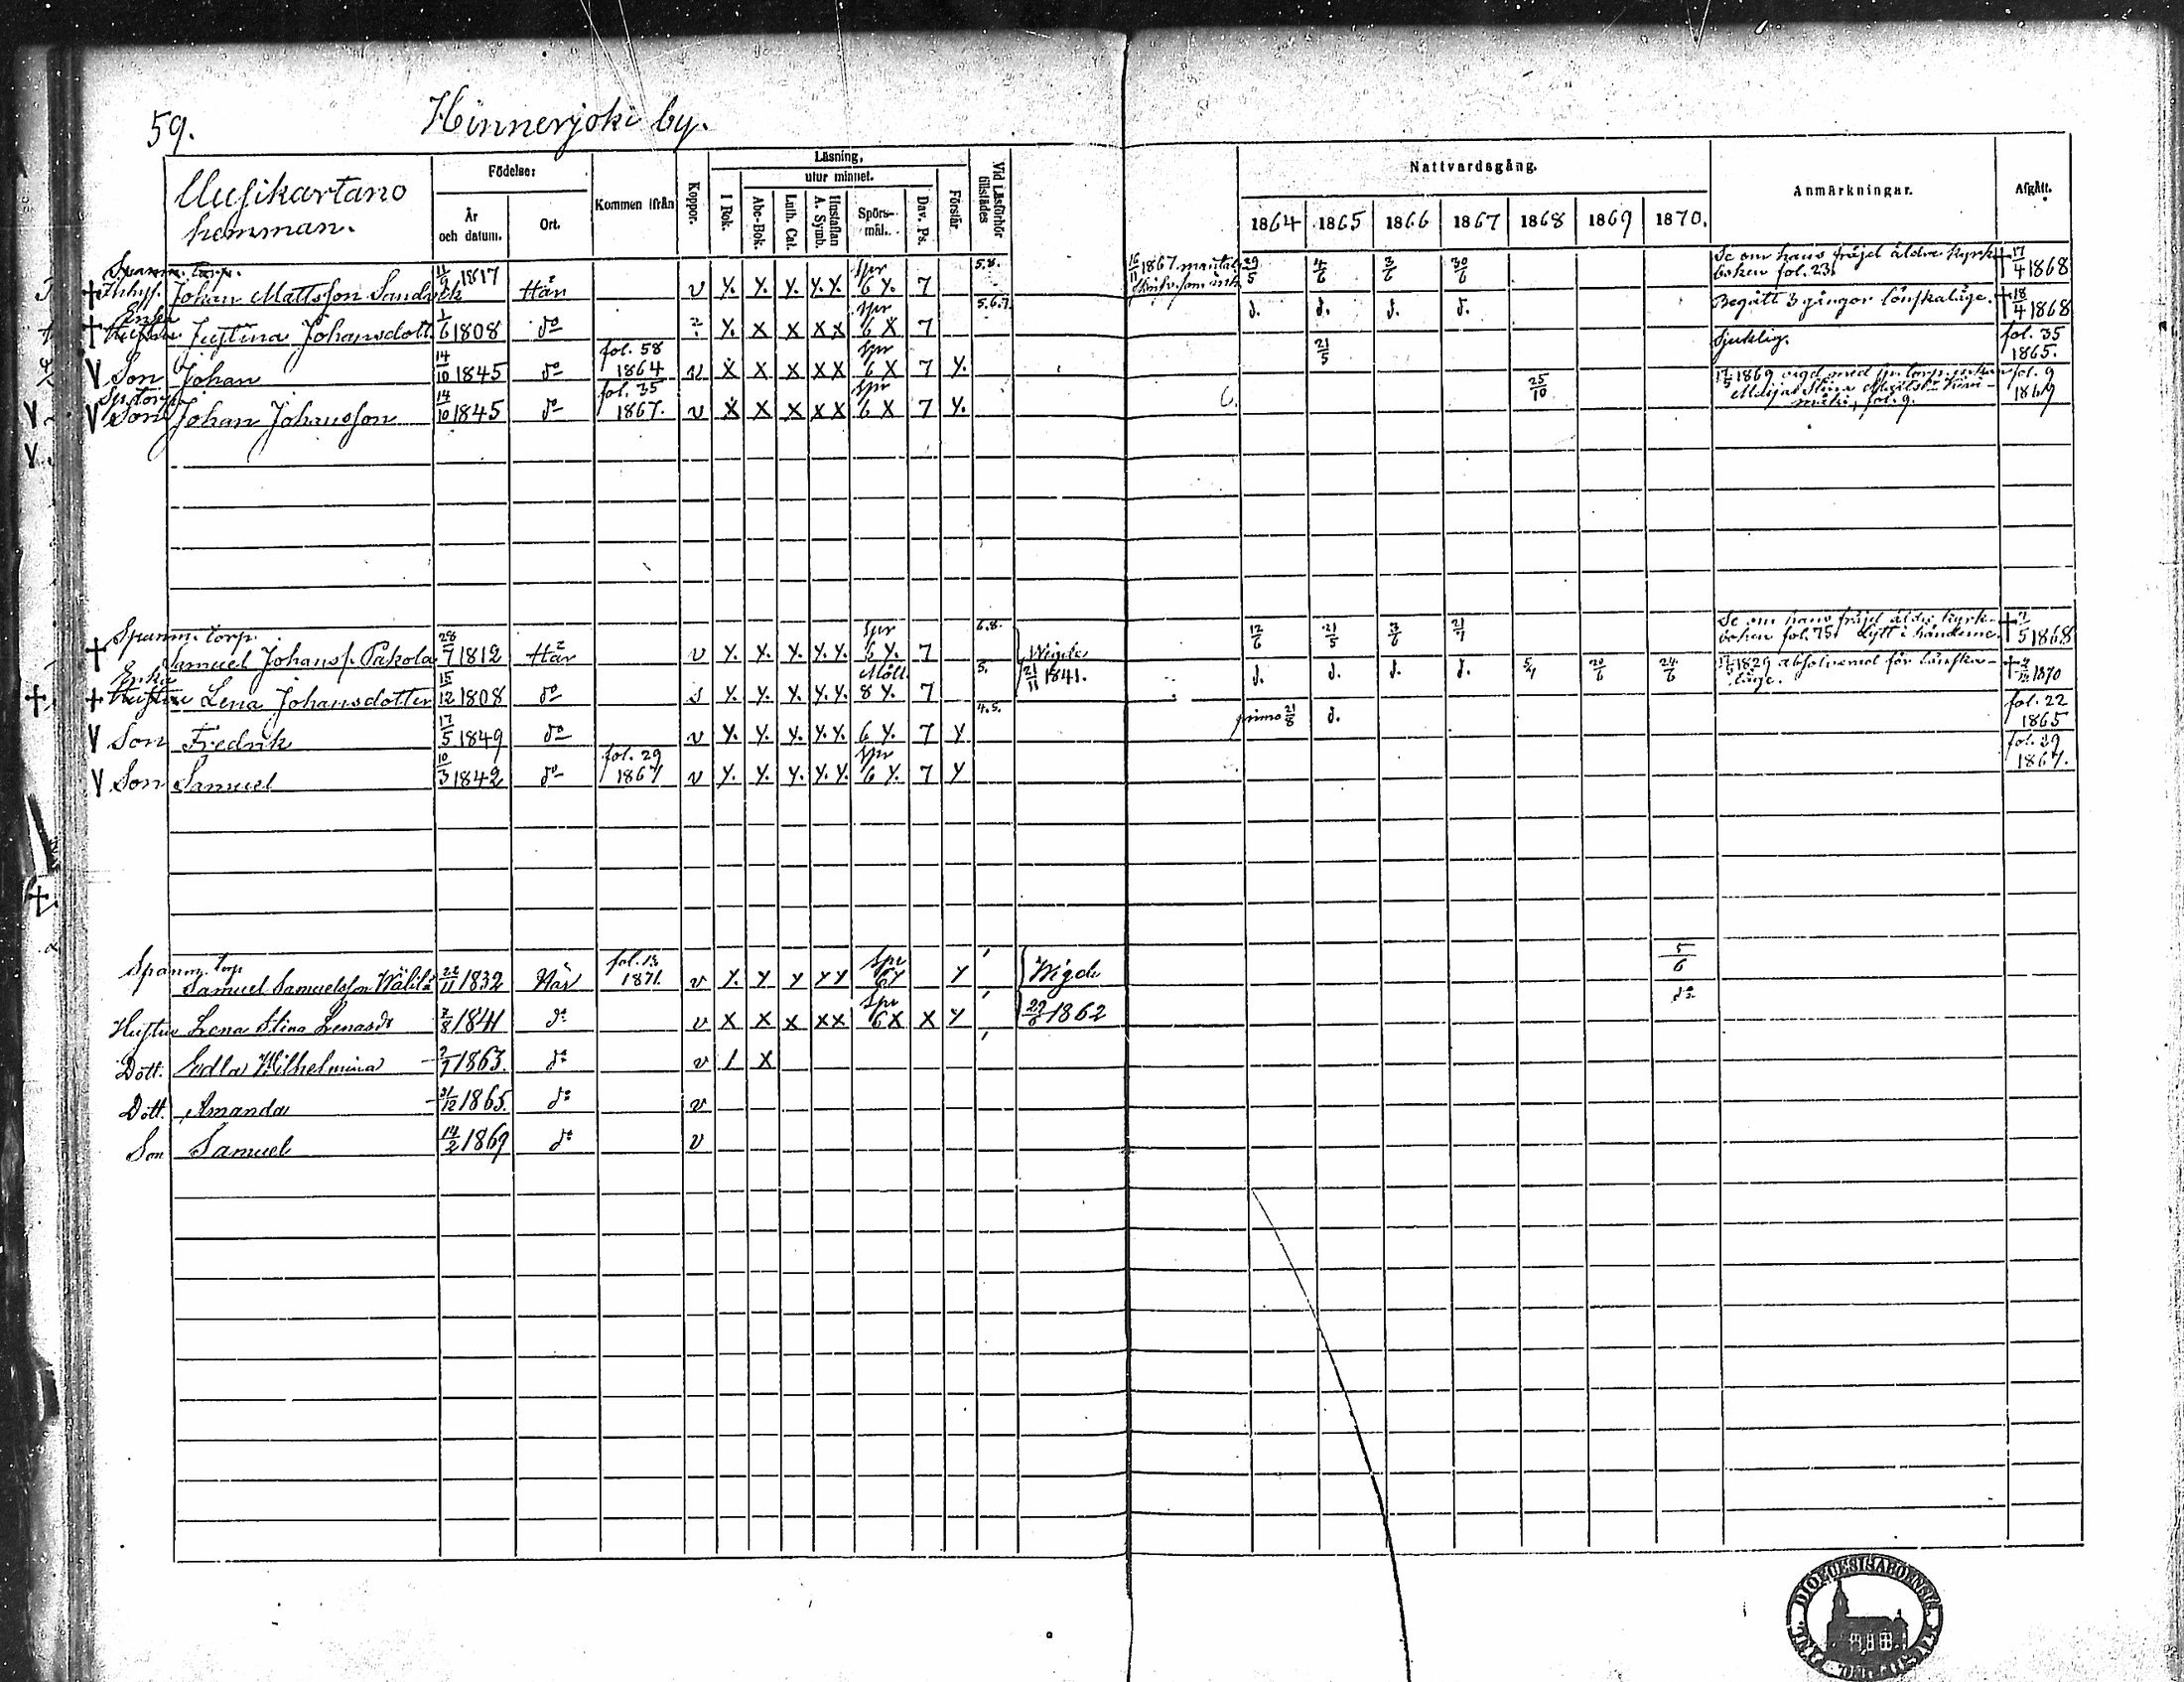 59. Hinnerjoki by.
Uusikartano
hemman.
Födelse: År och datum. Ort. Kommen ifrån Koppor. Läsning, I Bok. utur minnet. Abc-Bok. Luth. Cat. Hustaflan A. Symb. Spörs-mål. Dav. Ps. Förstår. Vid Läsförhör tillstädes
Nattvardsgång. 1864 1865 1866 1867 1868 1869 1870. Anmärkningar. Afgått.
Spanm. torp.
Inhys. Johan Mattsson Sandvik 11/9 1817 Här v y. y. y. y. y. Spr 6 y. 7 5.8. 16/11 1867 mantals 29/5 4/6 3/6 30/6 Se om hans fräjd äldre kyrk-
boken fol. 231 † 17/4 1868
Enka
Hustru Justina Johansdott. 1/6 1808 do ? y. x x x x Spr 6 x 7 5.6.7. d. d. d. d. Begått 3 gånger lönskaläge. † 18/4 1868
Son Johan 14/10 1845 do fol. 58 1864 v x x x x x Spr 6 x 7 y. 21/5 Sjuklig. fol. 35 1865.
Son Johan Johansson 14/10 1845 do fol. 35 1867. v x x x x x Spr 6 x 7 y. 25/10 17/5 1869 vigd med fol. 9 1869
Spanm. torp.
Samuel Johanss. Pakola 28/7 1812 Här v y. y. y. y. y. Spr 6 y. 7 6.8. Wigde 12/6 21/5 3/6 21/7 Se om hans fräjd äldre kyrk-
boken fol. 751 Lytt i händerne. † 5 1868
Enka
Hustru Lena Johansdotter 15/12 1808 do s y. y. y. y. y. Mått. 8 y. 7 5. 21/11 1841. d. d. d. d. 5/4 20/6 24/6 1829 absolverad för lönska-
läge. † 1870
Son Fredrik 17/5 1849 do v y. y. y. y. y. 6 y. 7 y 4.5. primo 21/8 d. fol. 22 1865
Son Samuel 10/3 1842 do fol. 29 1867 v y. y. y. y. y. Spr 6 y. 7 y fol. 29 1867.
Spanm. torp
Samuel Samuelsson Wälilä 22/11 1832 Här 1871. v y. y y y y Spr 6 y y Wigde 5/6
Hustru Lena Stina Lenasdr 7/8 1841 do v x x x x x Spr 6 x x y 29/6 1862 do
Dott. Edla Wilhelmina 1863. do v 1 x
Dott. Amanda 31/12 1865. do v
Son Samuel 14/2 1869 do v